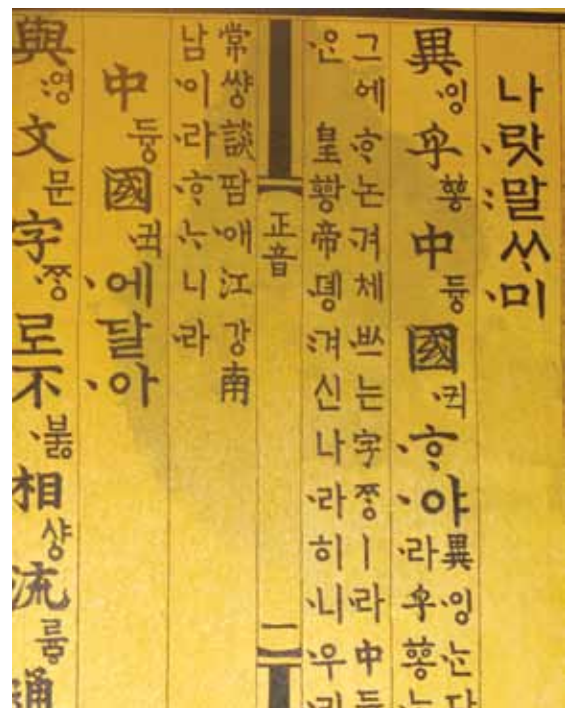 나·랏:말ᄊᆞ·미
異·잉乎ᅘᅩᆼ中듀ᇰ國·귁·ᄒᆞ·야
異·잉·는
·라乎ᅘᅩᆼ
그ᅌᅦ·ᄒᆞ논·겨체·ᄡᅳ는字·ᄍᆞᆼㅣ·라中
·ᄋᆞᆫ皇ᅘᅪᇰ帝·뎽:겨신나·라히·니·우
正音
一
常쌰ᇰ談땀·애江가ᇰ南
남·이·라·ᄒᆞ·ᄂᆞ니·라
中듀ᇰ國·귁·에달·아
與:영文문字·ᄍᆞᆼ로不·부ᇙ相샤ᇰ流류ᇢ通